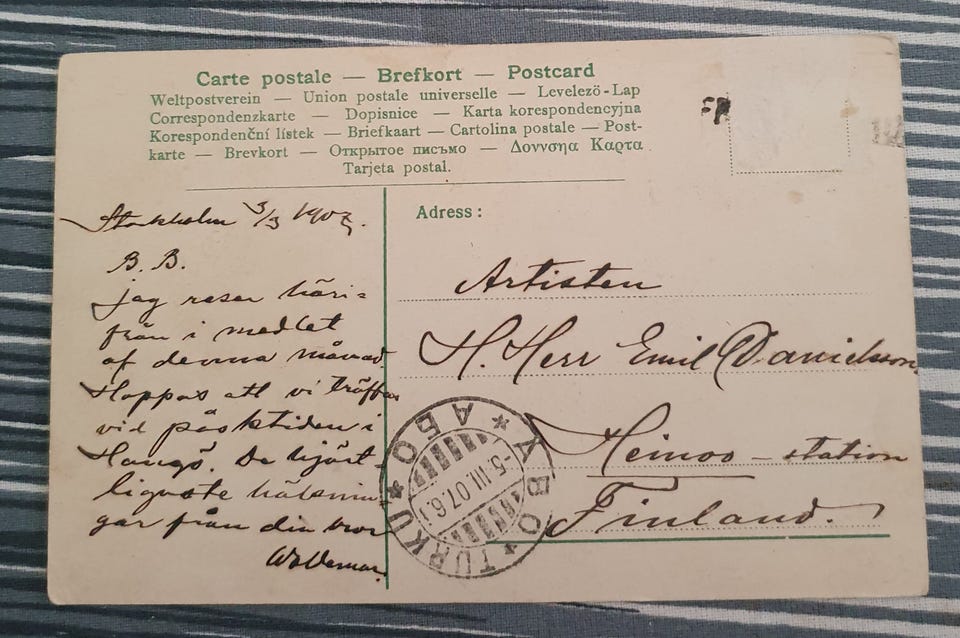 Carte postale — Brefkort — Postcard
Weltpostverein — Union postale universelle — Levelező-Lap
Correspondenzkarte — Dopisnice — Karta korespondencyjna
Korespondenční lístek — Briefkaart — Cartolina postale — Post-
karte — Brevkort — Открытое письмо — Δουνσηα Καρτα
Tarjeta postal.
Stockholm 3/3 1907.
B. B.
jag reser häri=
från i medlet
af denna månad
Hoppas att vi träffas
vid påsktiden i
Hangö. De hjärt-
ligaste hälsnin-
gar från din bror
Woldemar.
Adress:
Artisten
H. Herr Emil Danielsson
Heinoo - station
Finland.
ÅBO * TURKU * АБО *
-5.III.07.6